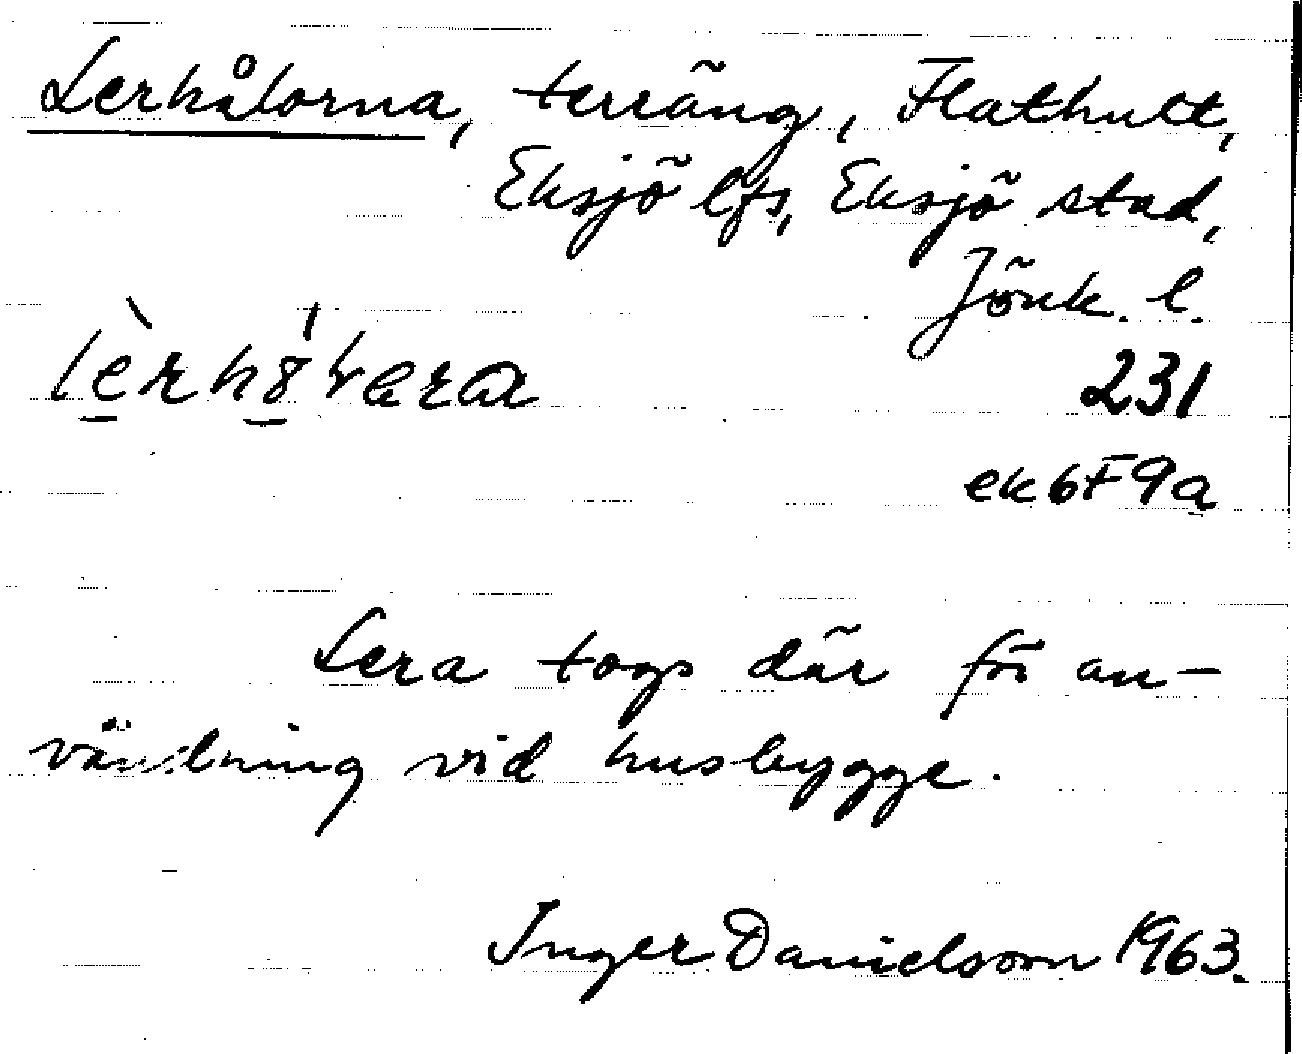 Lerhålorna, terräng, Flathult,
Eksjö lfs, Eksjö stad,
Jönk. l.
231
ek6F9a
Lera togs där för an-
vändning vid husbygge.
Inger Danielsson 1963.